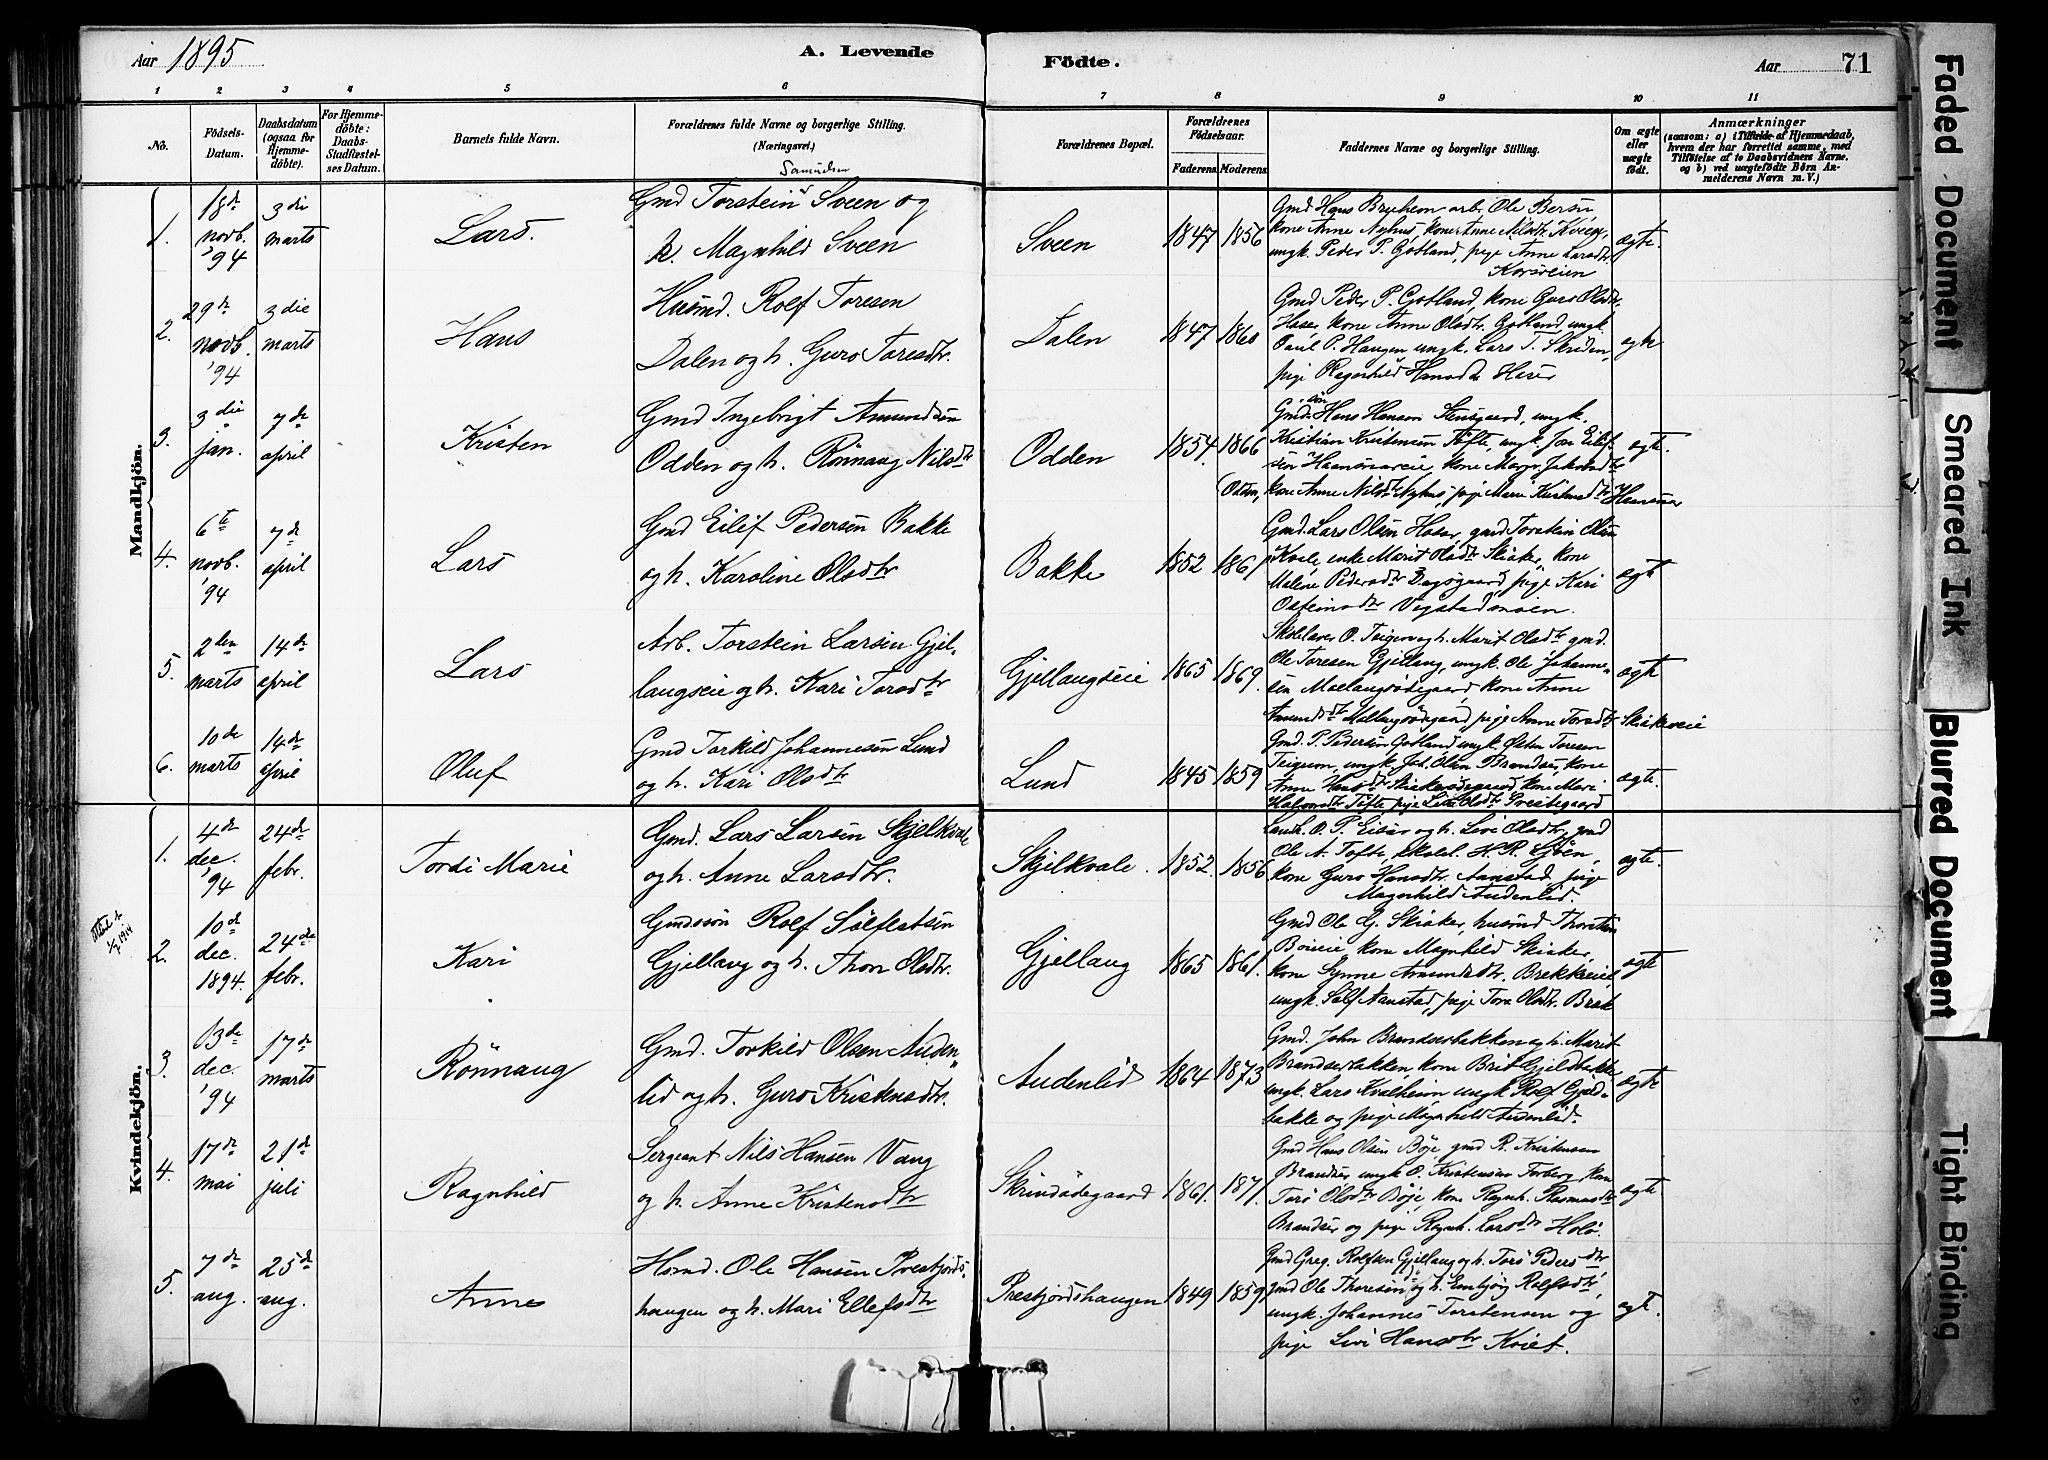 Aar 1895
A. Levende
Födte.
Aar
71
1 2 3 4 5 6 7 8 9 10 11
No.
Födsels-
Datum.
Daabsdatum
(ogsaa for
Hjemme-
döbte).
For Hjemme-
döbte:
Daabs-
Stadfæstel-
ses Datum.
Barnets fulde Navn.
Forældrenes fulde Navne og borgerlige Stilling.
(Næringsvei.)
Forældrenes Bopæl.
Forældrenes
Födselsaar.
Faderens
Moderens
Faddernes Navne og borgerlige Stilling.
Om ægte
eller
uægte
födt.
Anmærkninger
(saasom: a) i Tilfælde af Hjemmedaab,
hvem der har forrettet samme, med
Tilföielse af to Daabsvidners Navne.
og b) ved uægtefödte Börn An-
melderens Navn m. V.)
Mandkjön.
1.
18de
novb.
'94
3die
marts
Lars.
Samuelsen
Gmd Torstein Sveen og
h. Magnhild Sveen
Sveen
1847
1856
Gmd Hans Bryheim arb. Ole
kone Anne Nyhus, kone Anne Nilsdtr. Kveen,
ungk. Peder P. Gotland, pige Anne Larsdtr.
Korsveien
ægte.
2.
29de
novb.
'94
3die
marts
Hans
Husmd. Rolf Toresen
Dalen og h. Guro Toresdtr.
Dalen
1847
1860
Gmd Peder P. Gotland, kone Guro Olsdtr.
kone Anne Olsdtr. Gotland, ungk.
Paul P. Haugen ungk. Lars T. Skriden,
pige Ragnhild Hansdtr
ægte
3.
3die
jan.
7de
april
Kristen
Gmd Ingebrigt Amundsen
Odden og h. Rönnaug Nilsdtr
Odden
1854.
1866
Gmd.sön Hans Hansen Stensgaard, ungk.
Kristian Kristensen Tofte, ungk. Jon Eilef-
sen kone Margr. Jakobsdtr
(Odden, kone Anne Nilsdtr Nyhus, pige Mari
ægte.
4.
6te
novb.
'94
7de
april
Lars
Gmd Eilif Pedersen Bakke
og h. Karoline Olsdtr
Bakke
1852
1861
Gmd. Lars Olsen gmd Torstein Olsen
Kvale, enke Marit Olsdtr Skiaker, kone
Malene Pedersdtr Dagsgaard, pige Kari
Osteinsdtr Vigstadmoen.
ægte
5.
2den
marts
14de
april
Lars
Arb. Torstein Larsen Gjel-
laugseie og h. Kari Torsdtr
Gjellaugseie
1865
1869.
Skolelærer O. Teigen og h. Marit Olsdtr gmd.
Ole Toresen Gjellaug, ungk. Ole Johanne-
sen kone Anne
Amundsdtr pige Anne Torsdtr Skiakseie
ægte
6.
10de
marts
14de
april
Oluf
Gmd Torkild Johannesen Lund
og h. Kari Olsdtr
Lund
1845
1859
Gmd. P. Pedersen Gotland, ungk. Østen Toresen
Teigum, ungk. Joh. Olsen kone
Anne Hansdtr kone Mari
Halvorsdtr Tofte pige Olsdtr Prestegaard
ægte.
Kvindekjön.
1.
4de
dec.
'94
24de
febr.
Tordi Marie
Gmd. Lars Larsen Skjelkvale
og h. Anne Larsdtr.
Skjelkvale.
1852
1856
O. P. og h. Livi Olsdtr, gmd
Ole A. Tofte, skolel. H. R.
kone Guro Hansdtr. Aanstad, pige
Magnhild Audenlid.
ægte.
2.
10de
dec.
1894.
24de
febr.
Kari
Gmdssön Rolf Sölfestsen
Gjellaug og h. Thon Olsdtr.
Gjellaug
1865
1861.
Gmd Ole G. Skiaker, husmd Thorstein
kone Magnhild Skiaker,
kone Synne Amundsdtr. Brekkeeie,
ungk. Sölf. Aanstad, pige Tora Olsdtr. Bræk
ægte
1/7 1914
3.
13de
dec.
'94
17de
marts
Rönnaug
Gmd. Torkild Olsen Auden-
lid og h. Guro Kristensdtr.
Audenlid
1864
1873
Gmd. John Brandserbakken og h. Marit
Brandserbakken, kone Brit Gjeldbakke,
ungk. Lars Kvalheim ungk Rolf Gjeld-
bakke og pige Magnhild Audenlid.
ægte
4.
17de
mai
21de
juli
Ragnhild
Sergeant Nils Hansen Vang
og h. Anne Kristensdtr
Skrindödegaard
1861.
1871.
Gmd Hans Olsen Böje gmd R. Kristensen
Brandser, ungk O. Kristensen Forberg, kone
Toro Olsdtr Böje, kone Ragnh. Rasmusdtr
Brandser og pige Ragnh. Larsdtr Holö.
ægte
5.
7de
aug.
25de
aug.
Anne
Hsmd. Ole Hansen Prestjords-
haugen og h. Mari Ellefsdtr
Prestjordshaugen
1849
1859
Gmd Greg. Rolfsen Gjellaug og h. Toro Pedersdtr
gmd Ole Thoresen og h. Embjörg Rolfsdtr,
ungk. Johannes Torstensen og
pige Livi Hansdtr Kviet.
ægte.
Faded Document
Smeared Ink
Blurred Document
Tight Binding